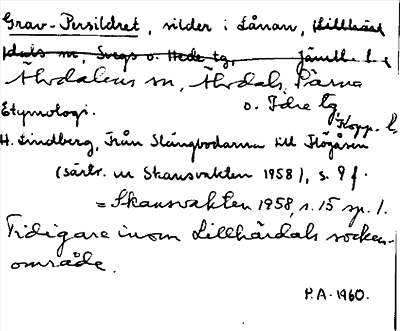 Grav-Persildret, vilder i Lånan, Lillhärd
dals sn, Svegs o. Hede tg, Jämtl. l.
Älvdalens sn, Älvdals, Särna
o. Idre tg,
Etymologi. Kopp. l.
H. Lindberg, Från Slängbodarna till Högåsen
(särtr. ur Skansvakten 1958), s. 9 f.
= Skansvakten 1958, s. 15 sp. 1.
Tidigare inom Lillhärdals socken-
område.
P.A. 1960.